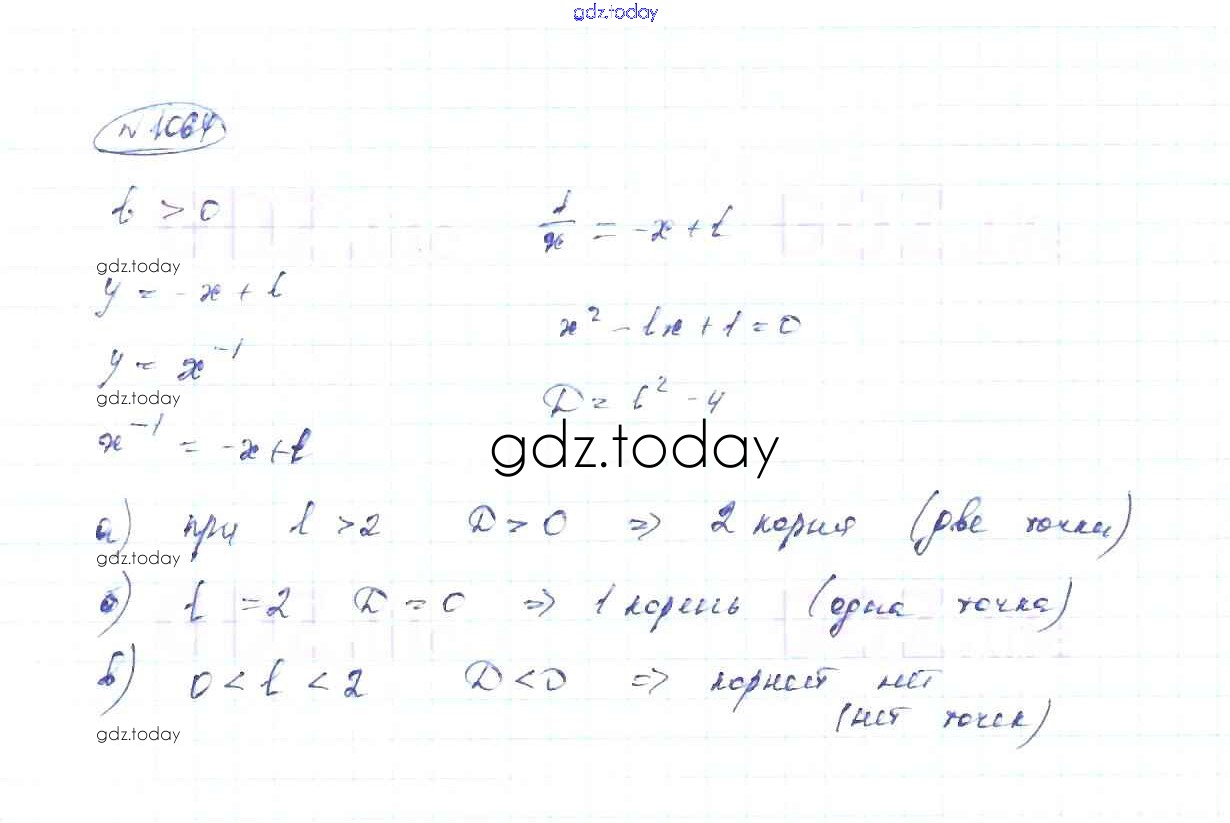 gdz.today
№ 1064
b > 0
gdz.today
y = -x + b
y = x⁻¹
gdz.today
x⁻¹ = -x + b
1/x = -x + b
x² - bx + 1 = 0
D = b² - 4
gdz.today
а) при b > 2 D > 0 => 2 корня (две точки)
gdz.today
б) b = 2 D = 0 => 1 корень (одна точка)
в) 0 < b < 2 D < 0 => корней нет
(нет точек)
gdz.today